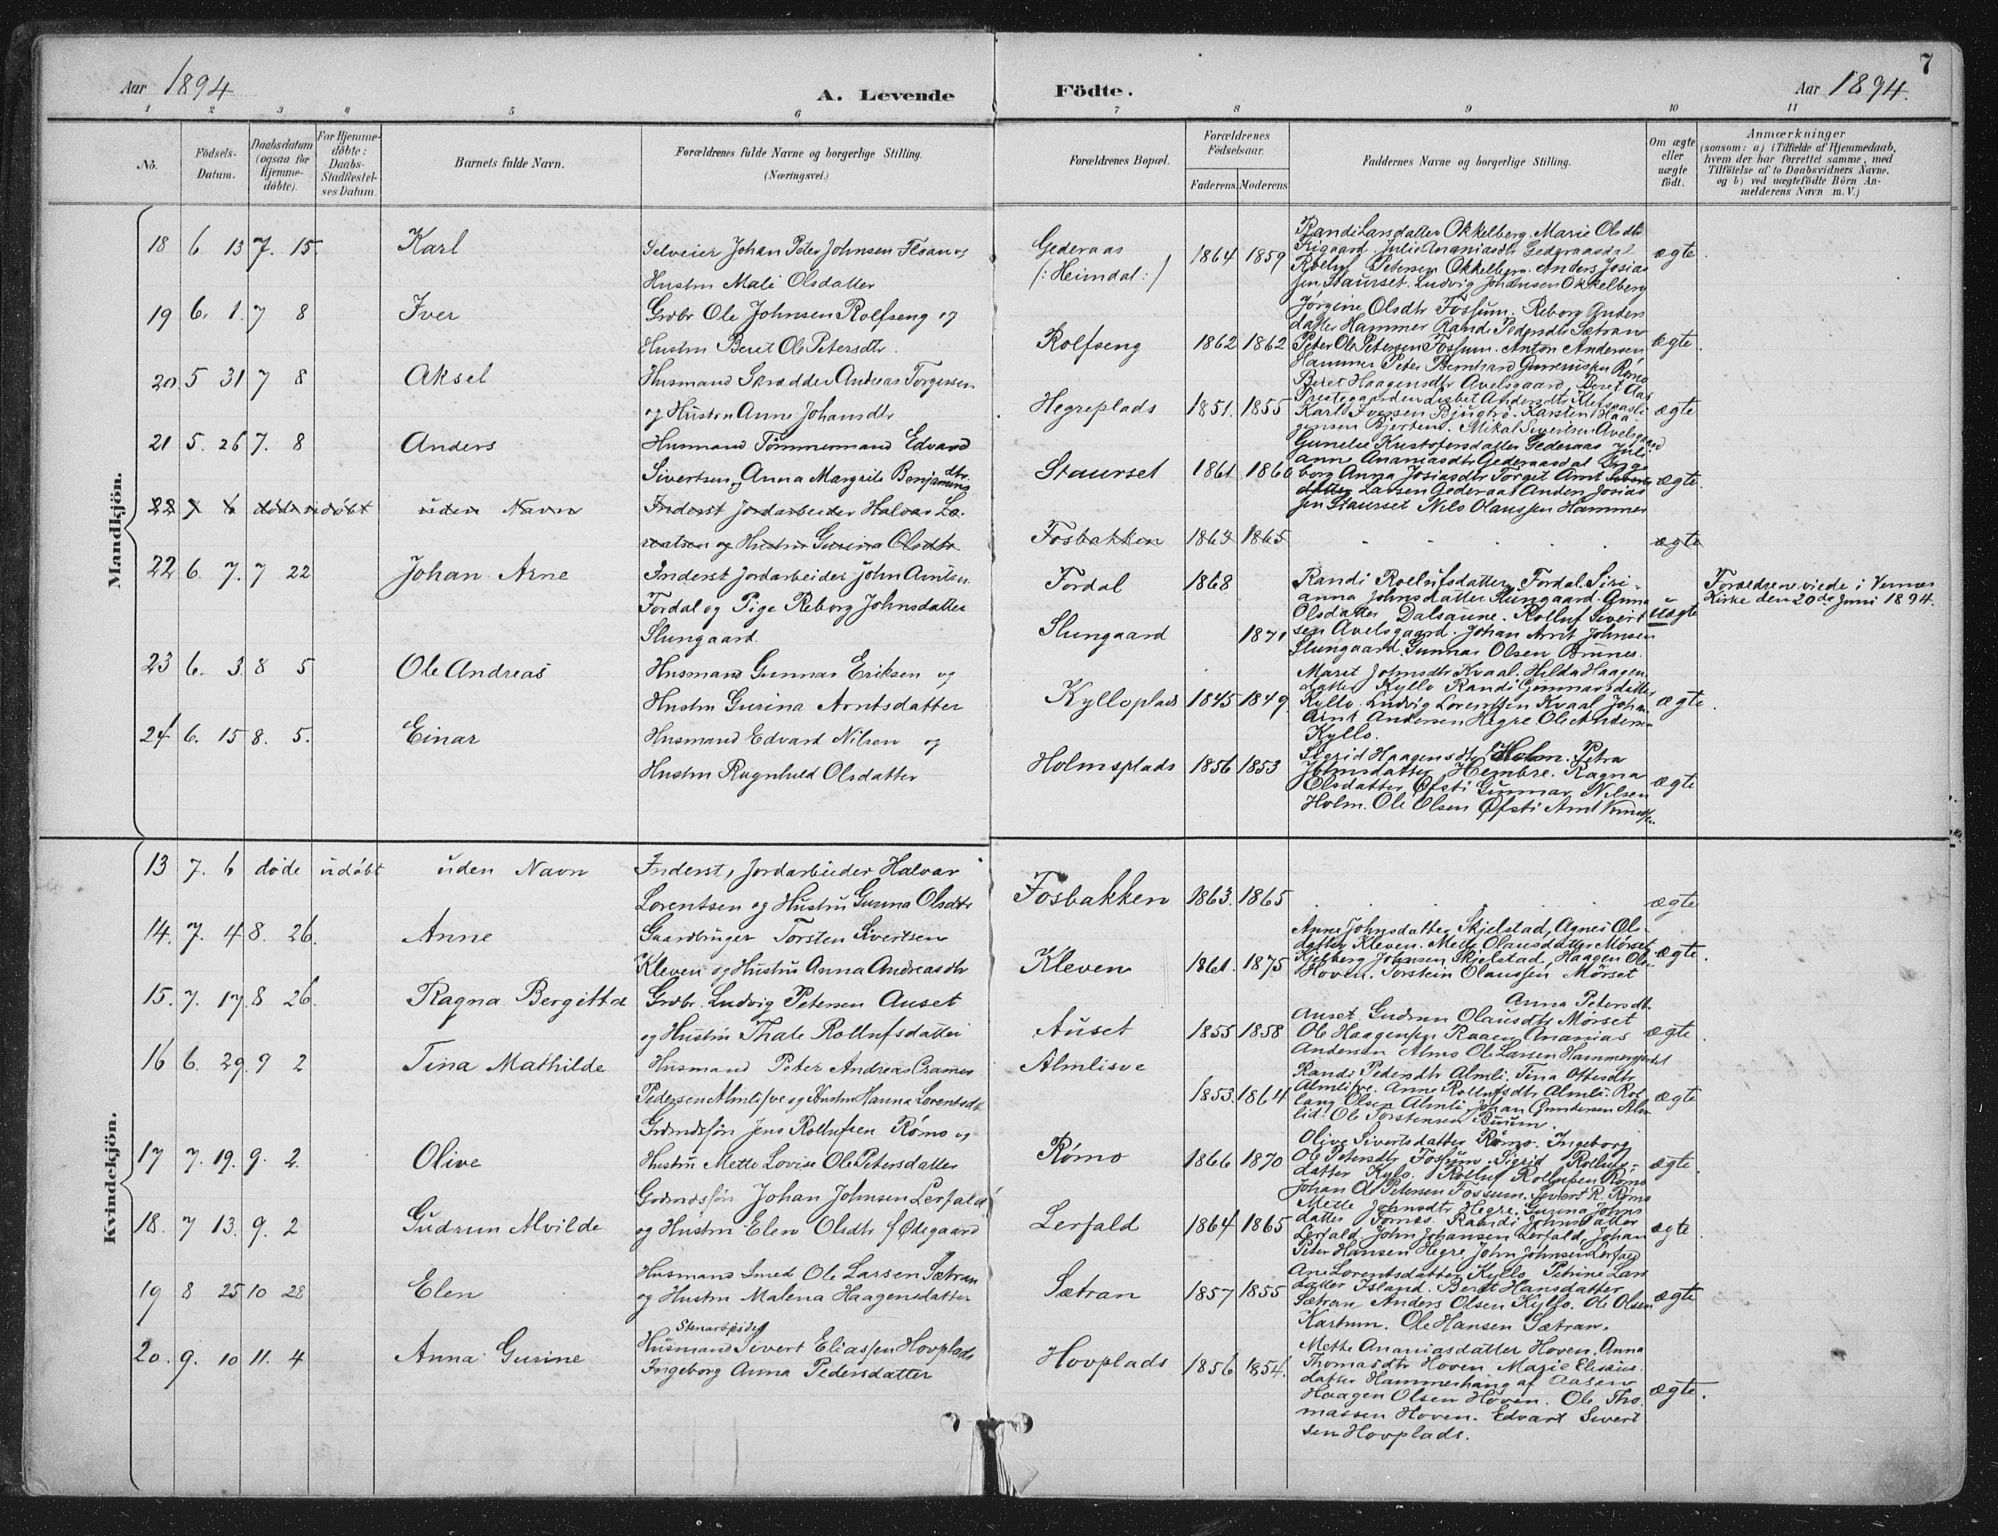 7
Aar 1894
A. Levende Födte.
Aar 1894.
1 2 3 4 5 6 7 8 9 10 11
No.
Födsels-Datum.
Daabsdatum (ogsaa for Hjemme-döbte).
For Hjemme-döbte: Daabs-Stadfæstel-ses Datum.
Barnets fulde Navn.
Forældrenes fulde Navne og borgerlige Stilling.
(Næringsvei.)
Forældrenes Bopæl.
Forældrenes Födselsaar.
Faderens. Moderens
Faddernes Navne og borgerlige Stilling.
Om ægte eller uægte födt.
Anmærkninger
(saasom: a) i Tilfælde af Hjemmedaab,
hvem der har forrettet samme, med
Tilföielse af to Daabsvidners Navne,
og b) ved uægtefödte Börn An-
melderens Navn m. V.)
Mandkjön.
18 6. 13 7. 15. Karl
Selveier Johan Peter Johnsen Floan og
Hustru Mali Olsdatter
Gederaas
(: Heimdal :)
1864 1859
Randi Larsdatter Okkelberg. Marie Olsdtr
Julie Ananiasdtr Gederaasdal
Petersen Okkelberg. Anders Josia
sen, Staurset. Ludvig Johansen Okkelberg
ægte
19 6. 1. 7 8 Iver
Grdbr Ole Johnsen Rolfseng og
Hustru Beret Ole Petersdtr.
Rolfseng
1862 1862
Jörgine Olsdtr Fossum. Reborg Gunders
datter Hammer Randi Pedersdtr Sætran
Peter Ole Petersen Fossum. Anton Andersen
Hammer Peter Bernhard Römo
ægte.
20. 5 31 7 8 Aksel
Husmand Skrædder Andreas Torgersen
og Hustru Anne Johansdtr
Hegreplads
1851. 1855
Beret Haagensdtr Avelsgaard, Beret
Karl Iversen Karsten Haa
gensen Bjerken. Mikal Sivertsen Avelsgaard
ægte
21 5. 26 7. 8 Anders
Husmand Tömmermand Edvard
Sivertsen, Anna Margrete Benjaminsdtr
Staurset
1861 1860
Gunelie Kristofersdatter Gederaas Juli
anne Ananiasdtr Gederaasdal Inge
borg Anna Josiasdtr Torget Arnt
Larsen Gederaas Anders Josias
sen Staurset Nils Olaussen Hammer
ægte.
22 7 6 döde udöbt uden Navn
Inderst Jordarbeider Halvar Lo-
rentsen og Hustru Gurina Olsdtr
Fosbakken 1863 1865
ægte
22 6. 7. 7 22 Johan Arne
Inderst Jordarbeider John Arntsen
Fordal og Pige Reborg Johnsdatter
Slungaard
Fordal 1868
Slungaard 1871
Randi Rollufsdatter Fordal. Siri-
anna Johnsdatter Slungaard. Guna
Olsdatter Dalsaune. Rolluf Sivert
sen Avelsgaard. Johan Arnt Johnsen
Slungaard. Gunnar Olsen Brunes.
uægte
Forældrene viede i Vernes
Kirke den 20de Juni 1894.
23 6. 3. 8 5 Ole Andreas
Husmand Gunnar Eriksen og
Hustru Gurina Arntsdatter
Kylloplads 1845 1849
Marit Johnsdtr Kvaal. Hilda Haagen
datter Kyllo Randi Gunnarsdatter
Kyllo. Ludvig Lorentsen Kvaal Johan
Arnt Andersen Hegre Ole Anders
Kyllo.
ægte.
24 6. 15 8. 5. Einar
Husmand Edvard Nilsen og
Hustru Ragnhild Olsdatter
Holmsplads 1856 1853
Sigrid Haagensdtr Holm. Petra
Johnsdatter Hembre. Ragna
Olsdatter Øfsti Gunnar Nilsen
Holm. Ole Olsen Øfsti Arnt
ægte
Kvindekjön.
13 7. 6 döde udöbt uden Navn
Inderst, Jordarbeider Halvar
Lorentsen og Hustru Gurina Olsdtr
Fosbakken 1863. 1865
ægte
14. 7. 4 8. 26. Anne
Gaardbruger Torsten Sivertsen
Kleven og Hustru Anna Andreasdtr
Kleven 1861. 1875
Anne Johnsdatter Skjelstad, Agnes Ols-
datter Kleven. Mette Olausdatter Mörset
Kjelberg Johnsen Skjelstad, Haagen Ols
Hoven. Torstein Olaussen Mörset
ægte.
15. 7. 17. 8 26. Ragna Bergitta
Grdbr. Ludvig Petersen Auset
og Hustru Thale Rollufsdatter
Auset 1855 1858
Anna Petersdtr.
Auset. Gudrun Olausdtr Mörset
Ole Haagensen Raaen Ananias
Andersen Almo Ole Larsen
ægte.
16 6. 29. 9 2 Tina Mathilde
Husmand Peter Andreas Cramer
Pedersen Almlisve og Hustru Hanna Lorentsdtr
Almlisve
1853. 1864
Randi Pedersdtr Almli, Tina Ottesdtr
Almlisve. Anne Rollufsdtr Almli. Rol
lang Olsen Almli, Johan Gundersen Alm
lid. Ole Torstensen Buum.
ægte
17 7. 19. 9. 2. Olive
Grdmdssön Jens Rollufsen Römo og
Hustru Mette Lovise Ole Petersdatter
Römo 1866 1870
Olive Sivertsdatter Römo. Ingeborg
Ole Petersdtr Fossum. Sigrid Rollufs-
datter Kylo. Rolluf Rollufsen Römo
Johan Ole Petersen Fossum. Sivert R. Römo
ægte.
18. 7 13. 9. 2 Gudrun Alvilde
Grdmdssön Johan Johnsen Lerfald
og Hustru Elen Olsdtr f Ødegaard
Lerfald 1864 1865
Mette Johnsdtr Hegre. Gurina Johns
datter Fornes. Randi Johnsdatter
Lerfald. John Johansen Lerfald, Johan
Peter Hansen Hegre, John Johnsen Lerfald
ægte.
19 8 25 10 28 Elen
Husmand Smed Ole Larsen Sætran
og Hustru Malena Haagensdatter
Sætran 1857 1855
Ane Lorentsdatter Kyllo Petrine Lars
datter Island. Beret Hansdatter
Sætran Anders Olsen Kyllo. Ole Olsen
Karlum. Ole Hansen Sætran.
ægte.
20. 9. 10 11. 4 Anna Gurine
Stenarbeider
Husmand Sivert Eliassen Hovplads
Ingeborg Anna Pedersdatter
Hovplads 1856 1854.
Mette Ananiasdatter Hoven. Anna
Thomasdtr Hoven Marie Elisæus
datter Hammerhaug af Aasen
Haagen Olsen Hoven. Ole Tho
massen Hoven. Edvart Sivert
sen Hovplads.
ægte.